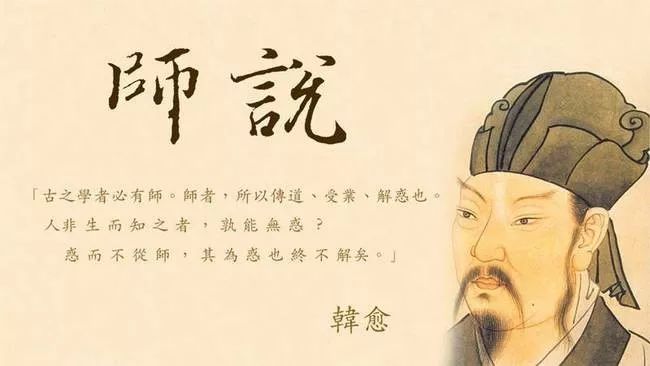 師說
「古之學者必有師。師者，所以傳道、受業、解惑也。
人非生而知之者，孰能無惑？
惑而不從師，其為惑也終不解矣。」
韓愈